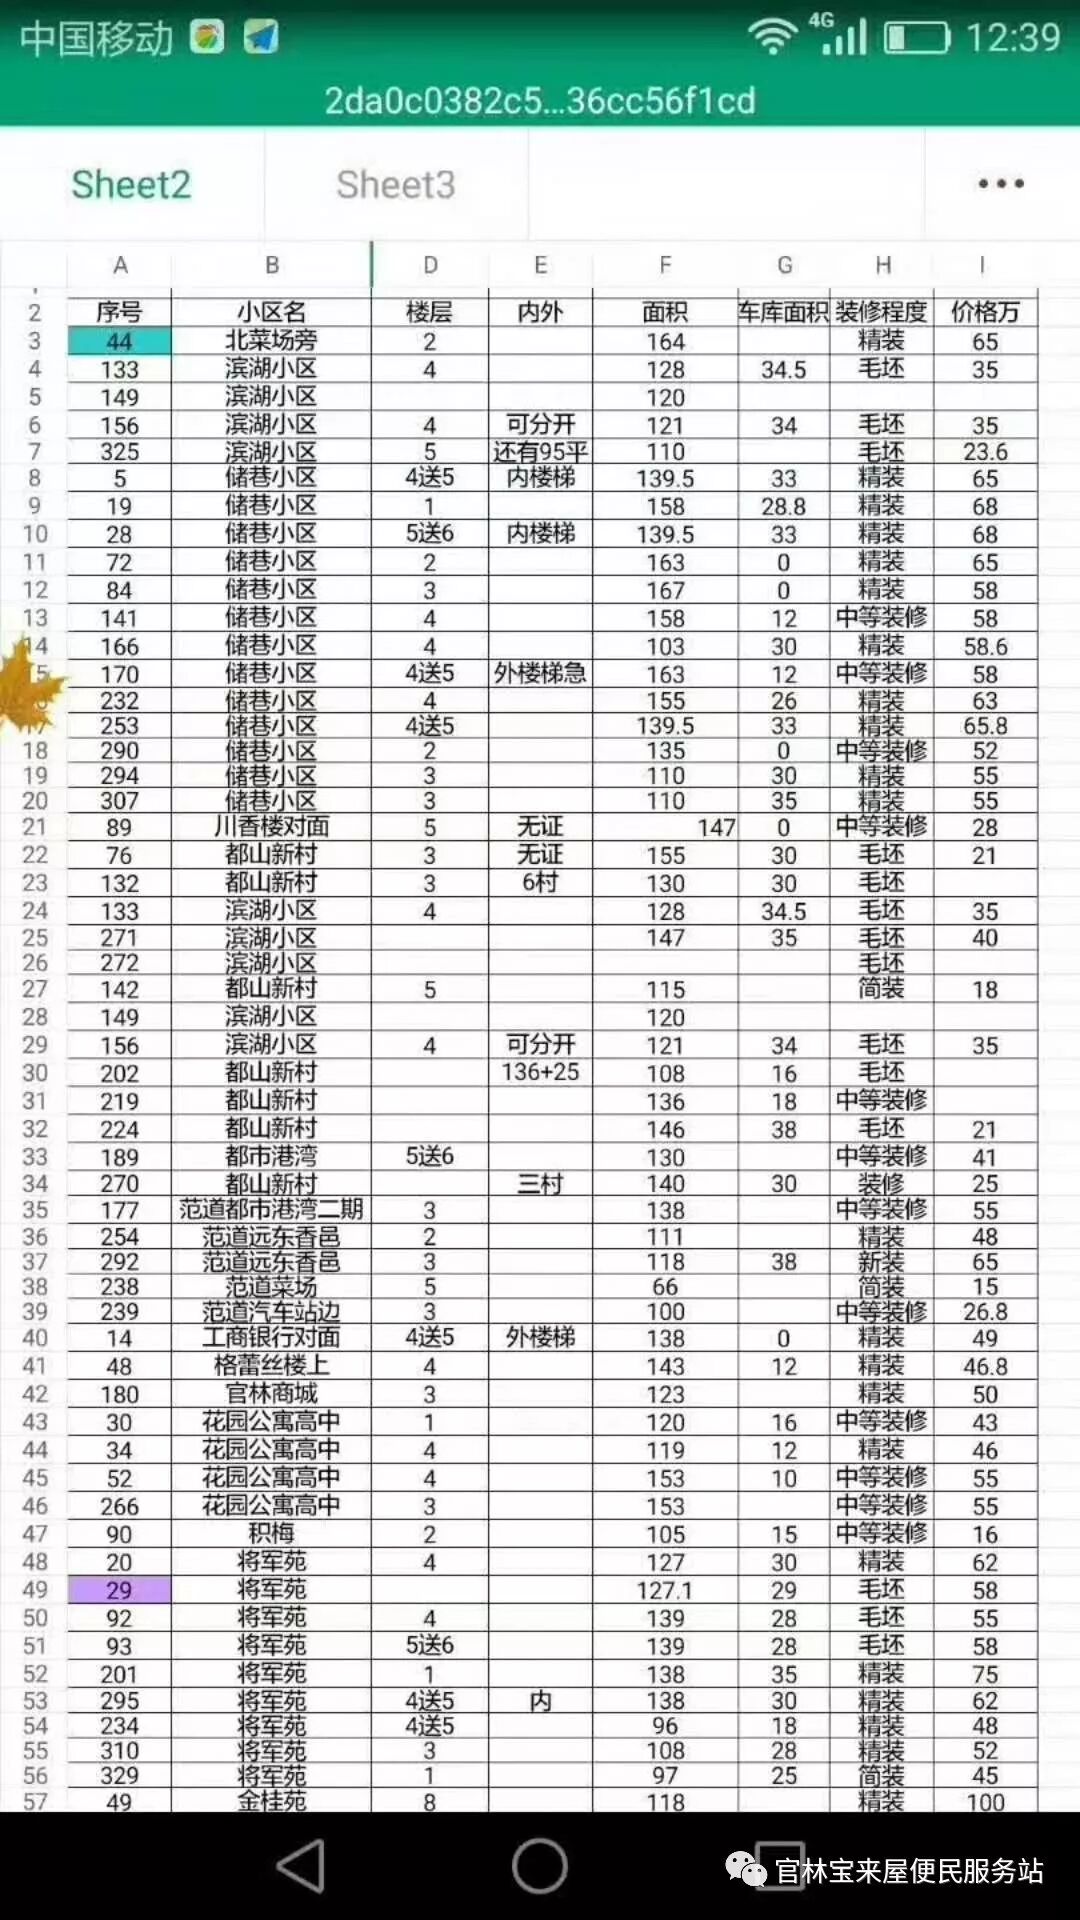 中国移动 4G 12:39
2da0c0382c5...36cc56f1cd
Sheet2 Sheet3
A B D E F G H I
2 序号 小区名 楼层 内外 面积 车库面积 装修程度 价格万
3 44 北菜场旁 2 164 精装 65
4 133 滨湖小区 4 128 34.5 毛坯 35
5 149 滨湖小区 120
6 156 滨湖小区 4 可分开 121 34 毛坯 35
7 325 滨湖小区 5 还有95平 110 毛坯 23.6
8 5 储巷小区 4送5 内楼梯 139.5 33 精装 65
9 19 储巷小区 1 158 28.8 精装 68
10 28 储巷小区 5送6 内楼梯 139.5 33 精装 68
11 72 储巷小区 2 163 0 精装 65
12 84 储巷小区 3 167 0 精装 58
13 141 储巷小区 4 158 12 中等装修 58
14 166 储巷小区 4 103 30 精装 58.6
15 170 储巷小区 4送5 外楼梯急 163 12 中等装修 58
232 储巷小区 4 155 26 精装 63
17 253 储巷小区 4送5 139.5 33 精装 65.8
18 290 储巷小区 2 135 0 中等装修 52
19 294 储巷小区 3 110 30 精装 55
20 307 储巷小区 3 110 35 精装 55
21 89 川香楼对面 5 无证 147 0 中等装修 28
22 76 都山新村 3 无证 155 30 毛坯 21
23 132 都山新村 3 6村 130 30 毛坯
24 133 滨湖小区 4 128 34.5 毛坯 35
25 271 滨湖小区 147 35 毛坯 40
26 272 滨湖小区 毛坯
27 142 都山新村 5 115 简装 18
28 149 滨湖小区 120
29 156 滨湖小区 4 可分开 121 34 毛坯 35
30 202 都山新村 136+25 108 16 毛坯
31 219 都山新村 136 18 中等装修
32 224 都山新村 146 38 毛坯 21
33 189 都市港湾 5送6 130 中等装修 41
34 270 都山新村 三村 140 30 装修 25
35 177 范道都市港湾二期 3 138 中等装修 55
36 254 范道远东香邑 2 111 精装 48
37 292 范道远东香邑 3 118 38 新装 65
38 238 范道菜场 5 66 简装 15
39 239 范道汽车站边 3 100 中等装修 26.8
40 14 工商银行对面 4送5 外楼梯 138 0 精装 49
41 48 格蕾丝楼上 4 143 12 精装 46.8
42 180 官林商城 3 123 精装 50
43 30 花园公寓高中 1 120 16 中等装修 43
44 34 花园公寓高中 4 119 12 精装 46
45 52 花园公寓高中 4 153 10 中等装修 55
46 266 花园公寓高中 3 153 中等装修 55
47 90 积梅 2 105 15 中等装修 16
48 20 将军苑 4 127 30 精装 62
49 29 将军苑 127.1 29 毛坯 58
50 92 将军苑 4 139 28 毛坯 55
51 93 将军苑 5送6 139 28 毛坯 58
52 201 将军苑 1 138 35 精装 75
53 295 将军苑 4送5 内 138 30 精装 62
54 234 将军苑 4送5 96 18 精装 48
55 310 将军苑 3 108 28 精装 52
56 329 将军苑 1 97 25 简装 45
57 49 金桂苑 8 118 精装 100
官林宝来屋便民服务站